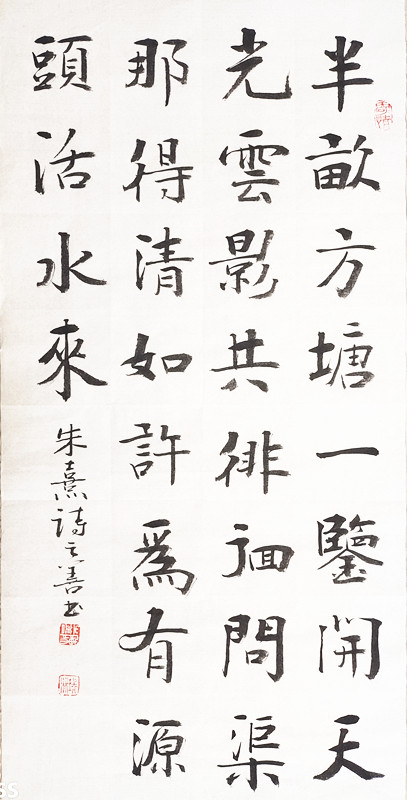 半畝方塘一鑒開天
光雲影共徘徊問渠
那得清如許爲有源
頭活水來
朱熹詩之善书
SS